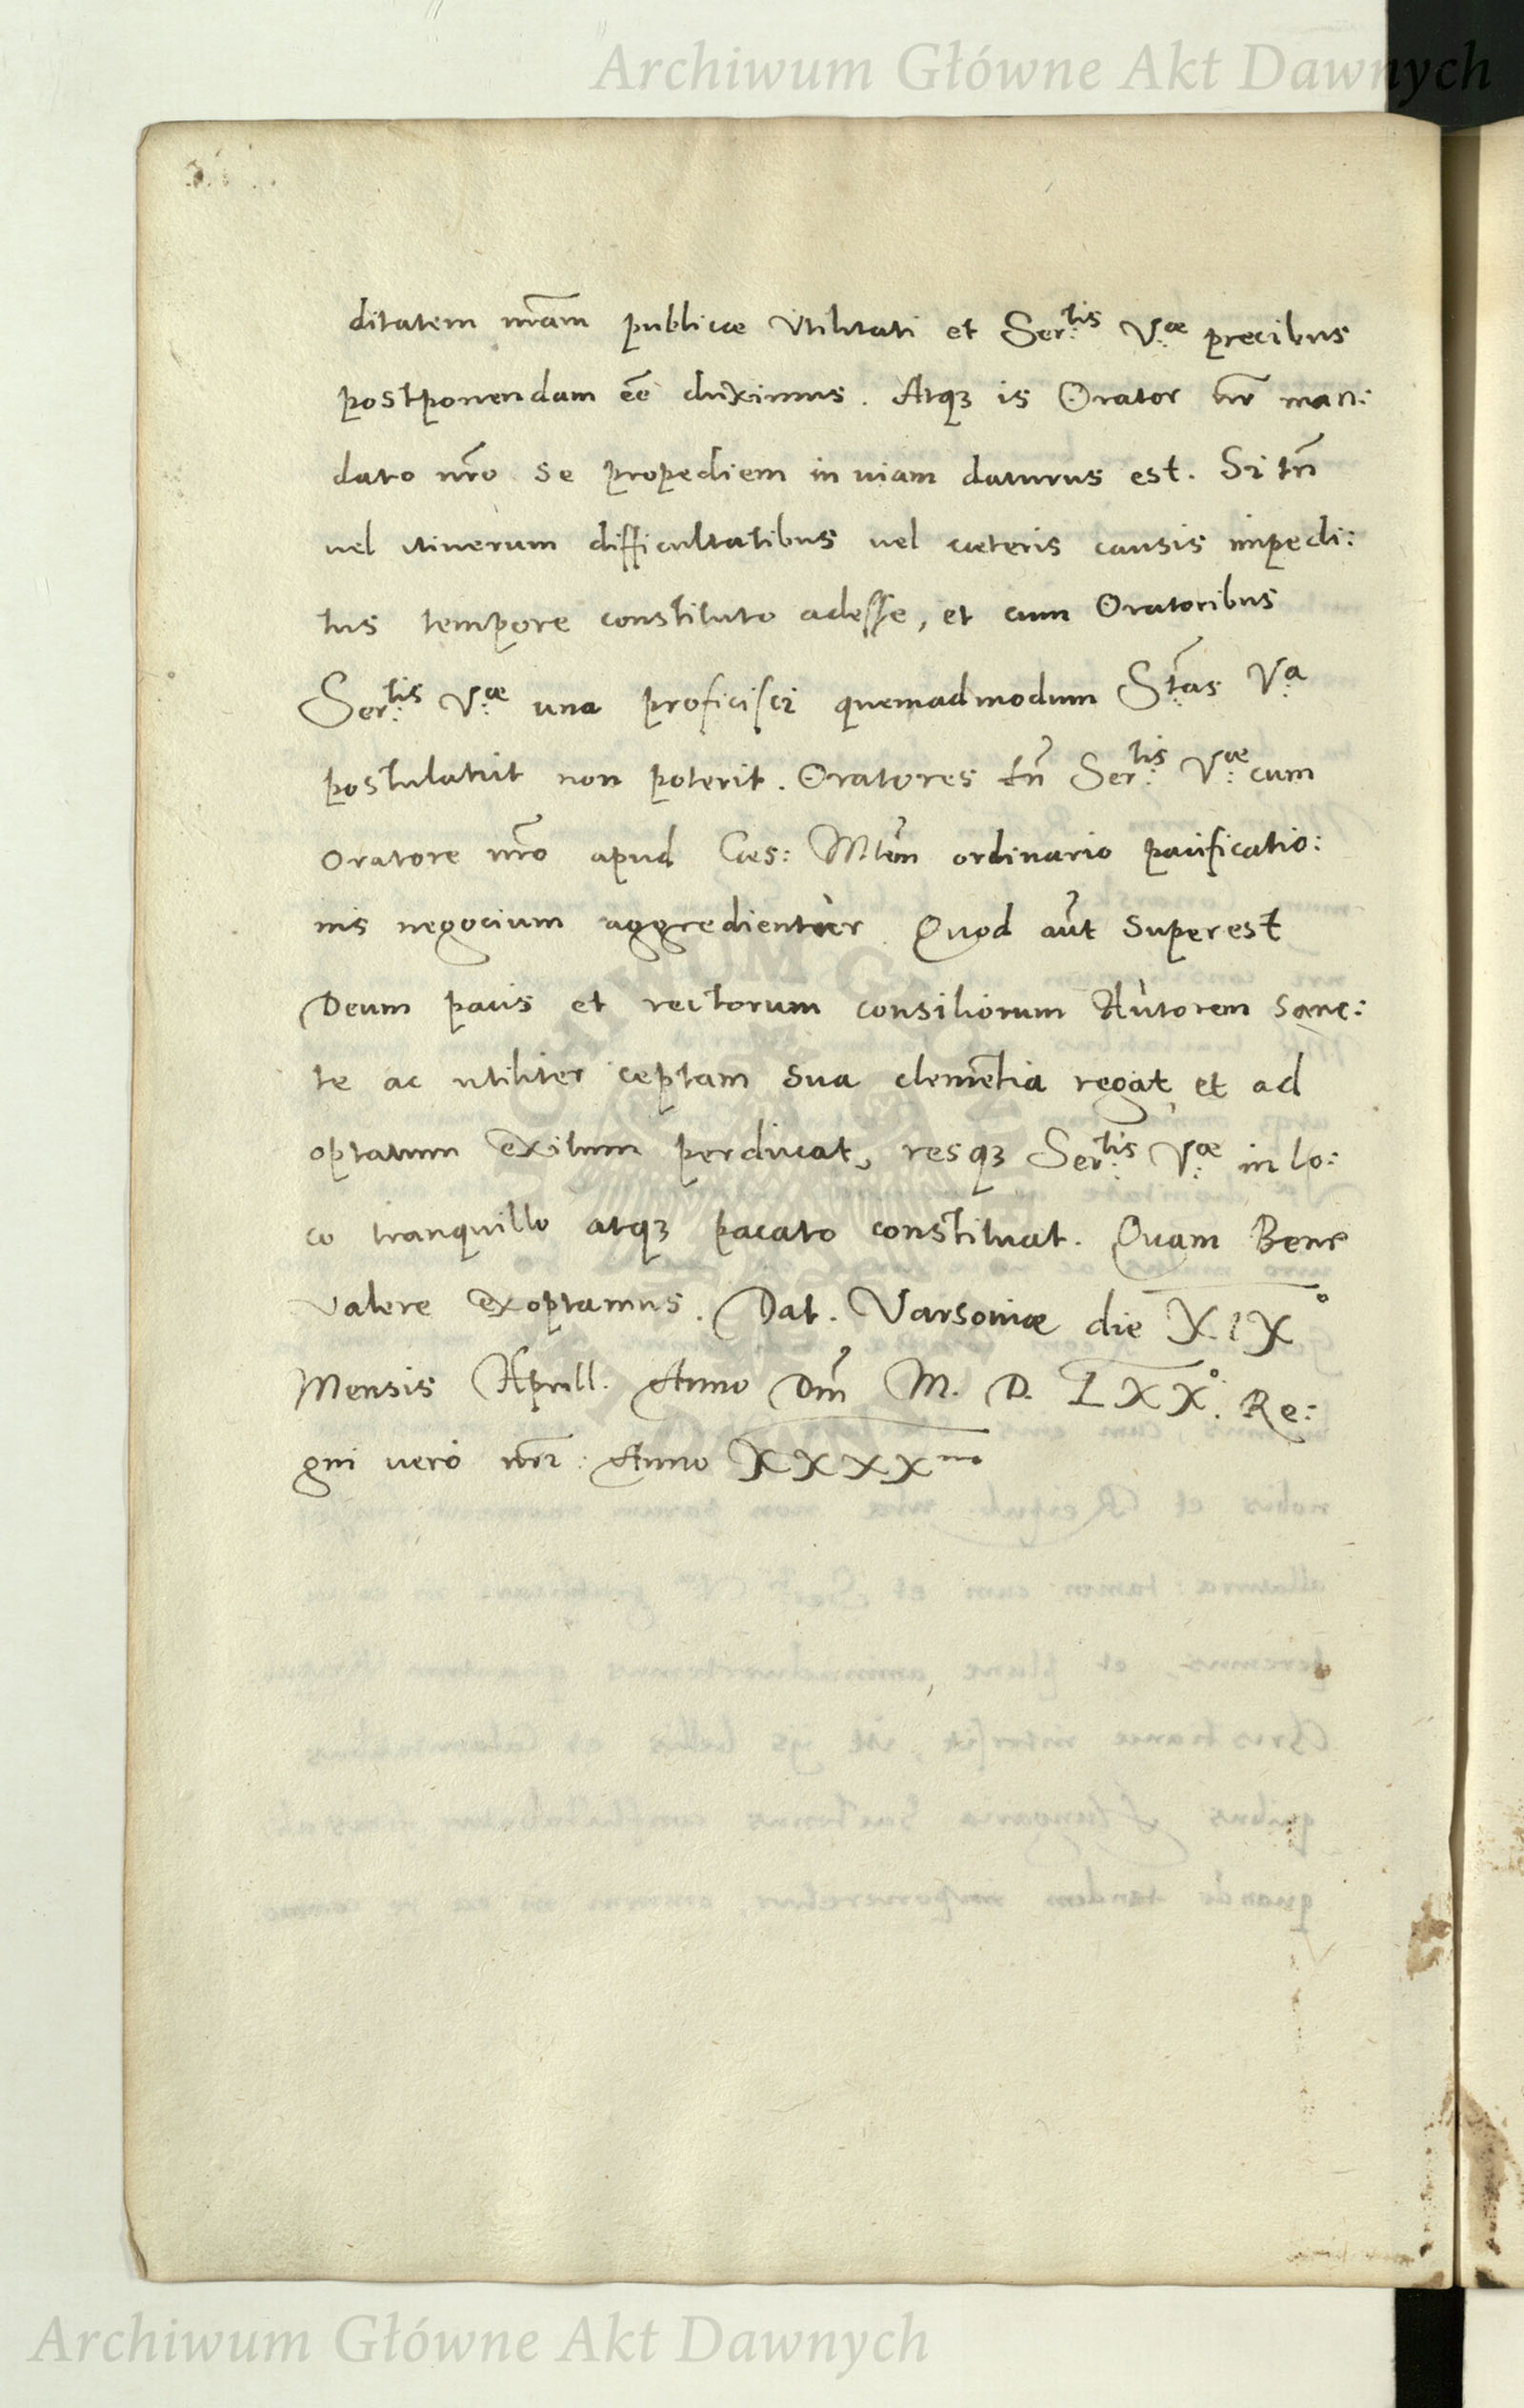 Archiwum Główne Akt Dawnych
ditatem nr̃am publicæ Vtilitati et Ser:tis V:æ precibus
postponendam ẽe duximus. Atqȝ is Orator nr̃ man:
dato nr̃o se propediem in uiam daturus est. Si tñ
uel itinerum difficultatibus uel cæteris causis impedi:
tus tempore constituto adesse, et cum Oratoribus
Ser:tis V:æ una proficisci quemadmodum S:tas V:a
postulauit non poterit. Oratores tñ Ser:tis V:æ cum
Oratore nr̃o apud Cæs: M:tem ordinario pacificatio:
nis negocium aggredientur. Quod aũt superest
Deum pacis et rectorum consiliorum Autorem sanc:
te ac utiliter ceptam sua clemẽtia regat et ad
optatum exitum perducat, resqȝ Ser:tis V:æ in lo:
co tranquillo atqȝ pacato constituat. Quam Bene
Valere exoptamus. Dat. Varsouiæ die XIX°
Mensis Aprill. Anno Dñi M. D. LXX°. Re:
gni uero nr̃i: Anno XXXXmo
Archiwum Główne Akt Dawnych